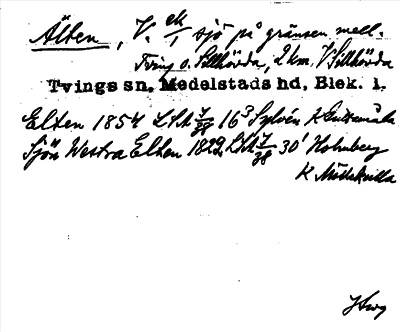 Älten, V. ek/1 sjö på gränsen mell.
Tving o. Sillhövda, 2 km. V Sillhövda
Tvings sn. Medelstads hd, Blek. l.
Elten 1854 LSA 7/28 16³ Sylvén K
Sjön Westra Elten 1822 LSA 7/28 30' Holmberg
K